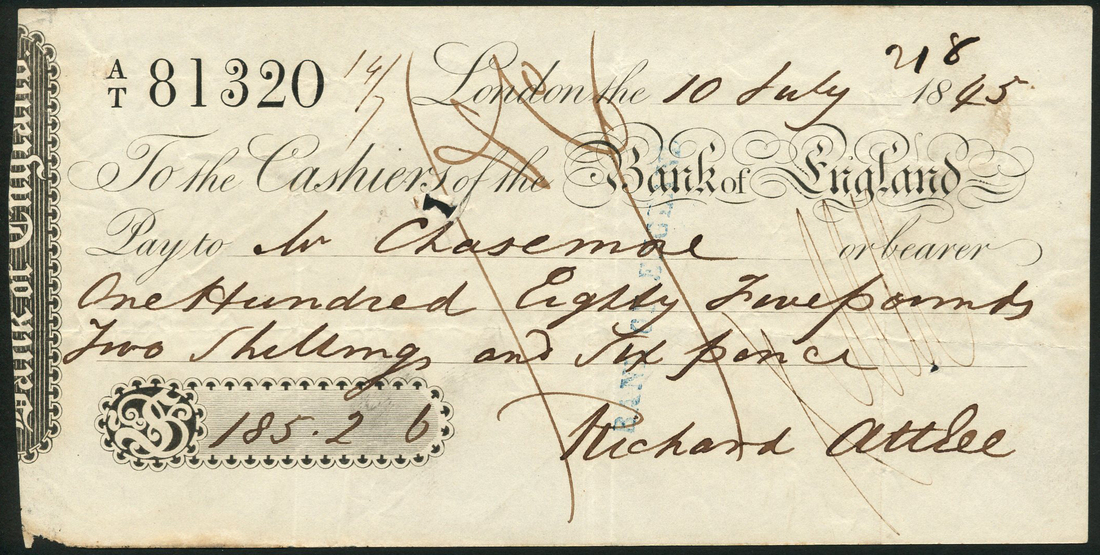 Bank of England
218
A/T 81320 14/7 London the 10 July 1845
To the Cashiers of the Bank of England
Pay to Mr Chasemore or bearer
One Hundred Eighty Five pounds
Two Shillings and Six pence
£ 185. 2 6
Richard Attlee
BANK OF ENGLAND